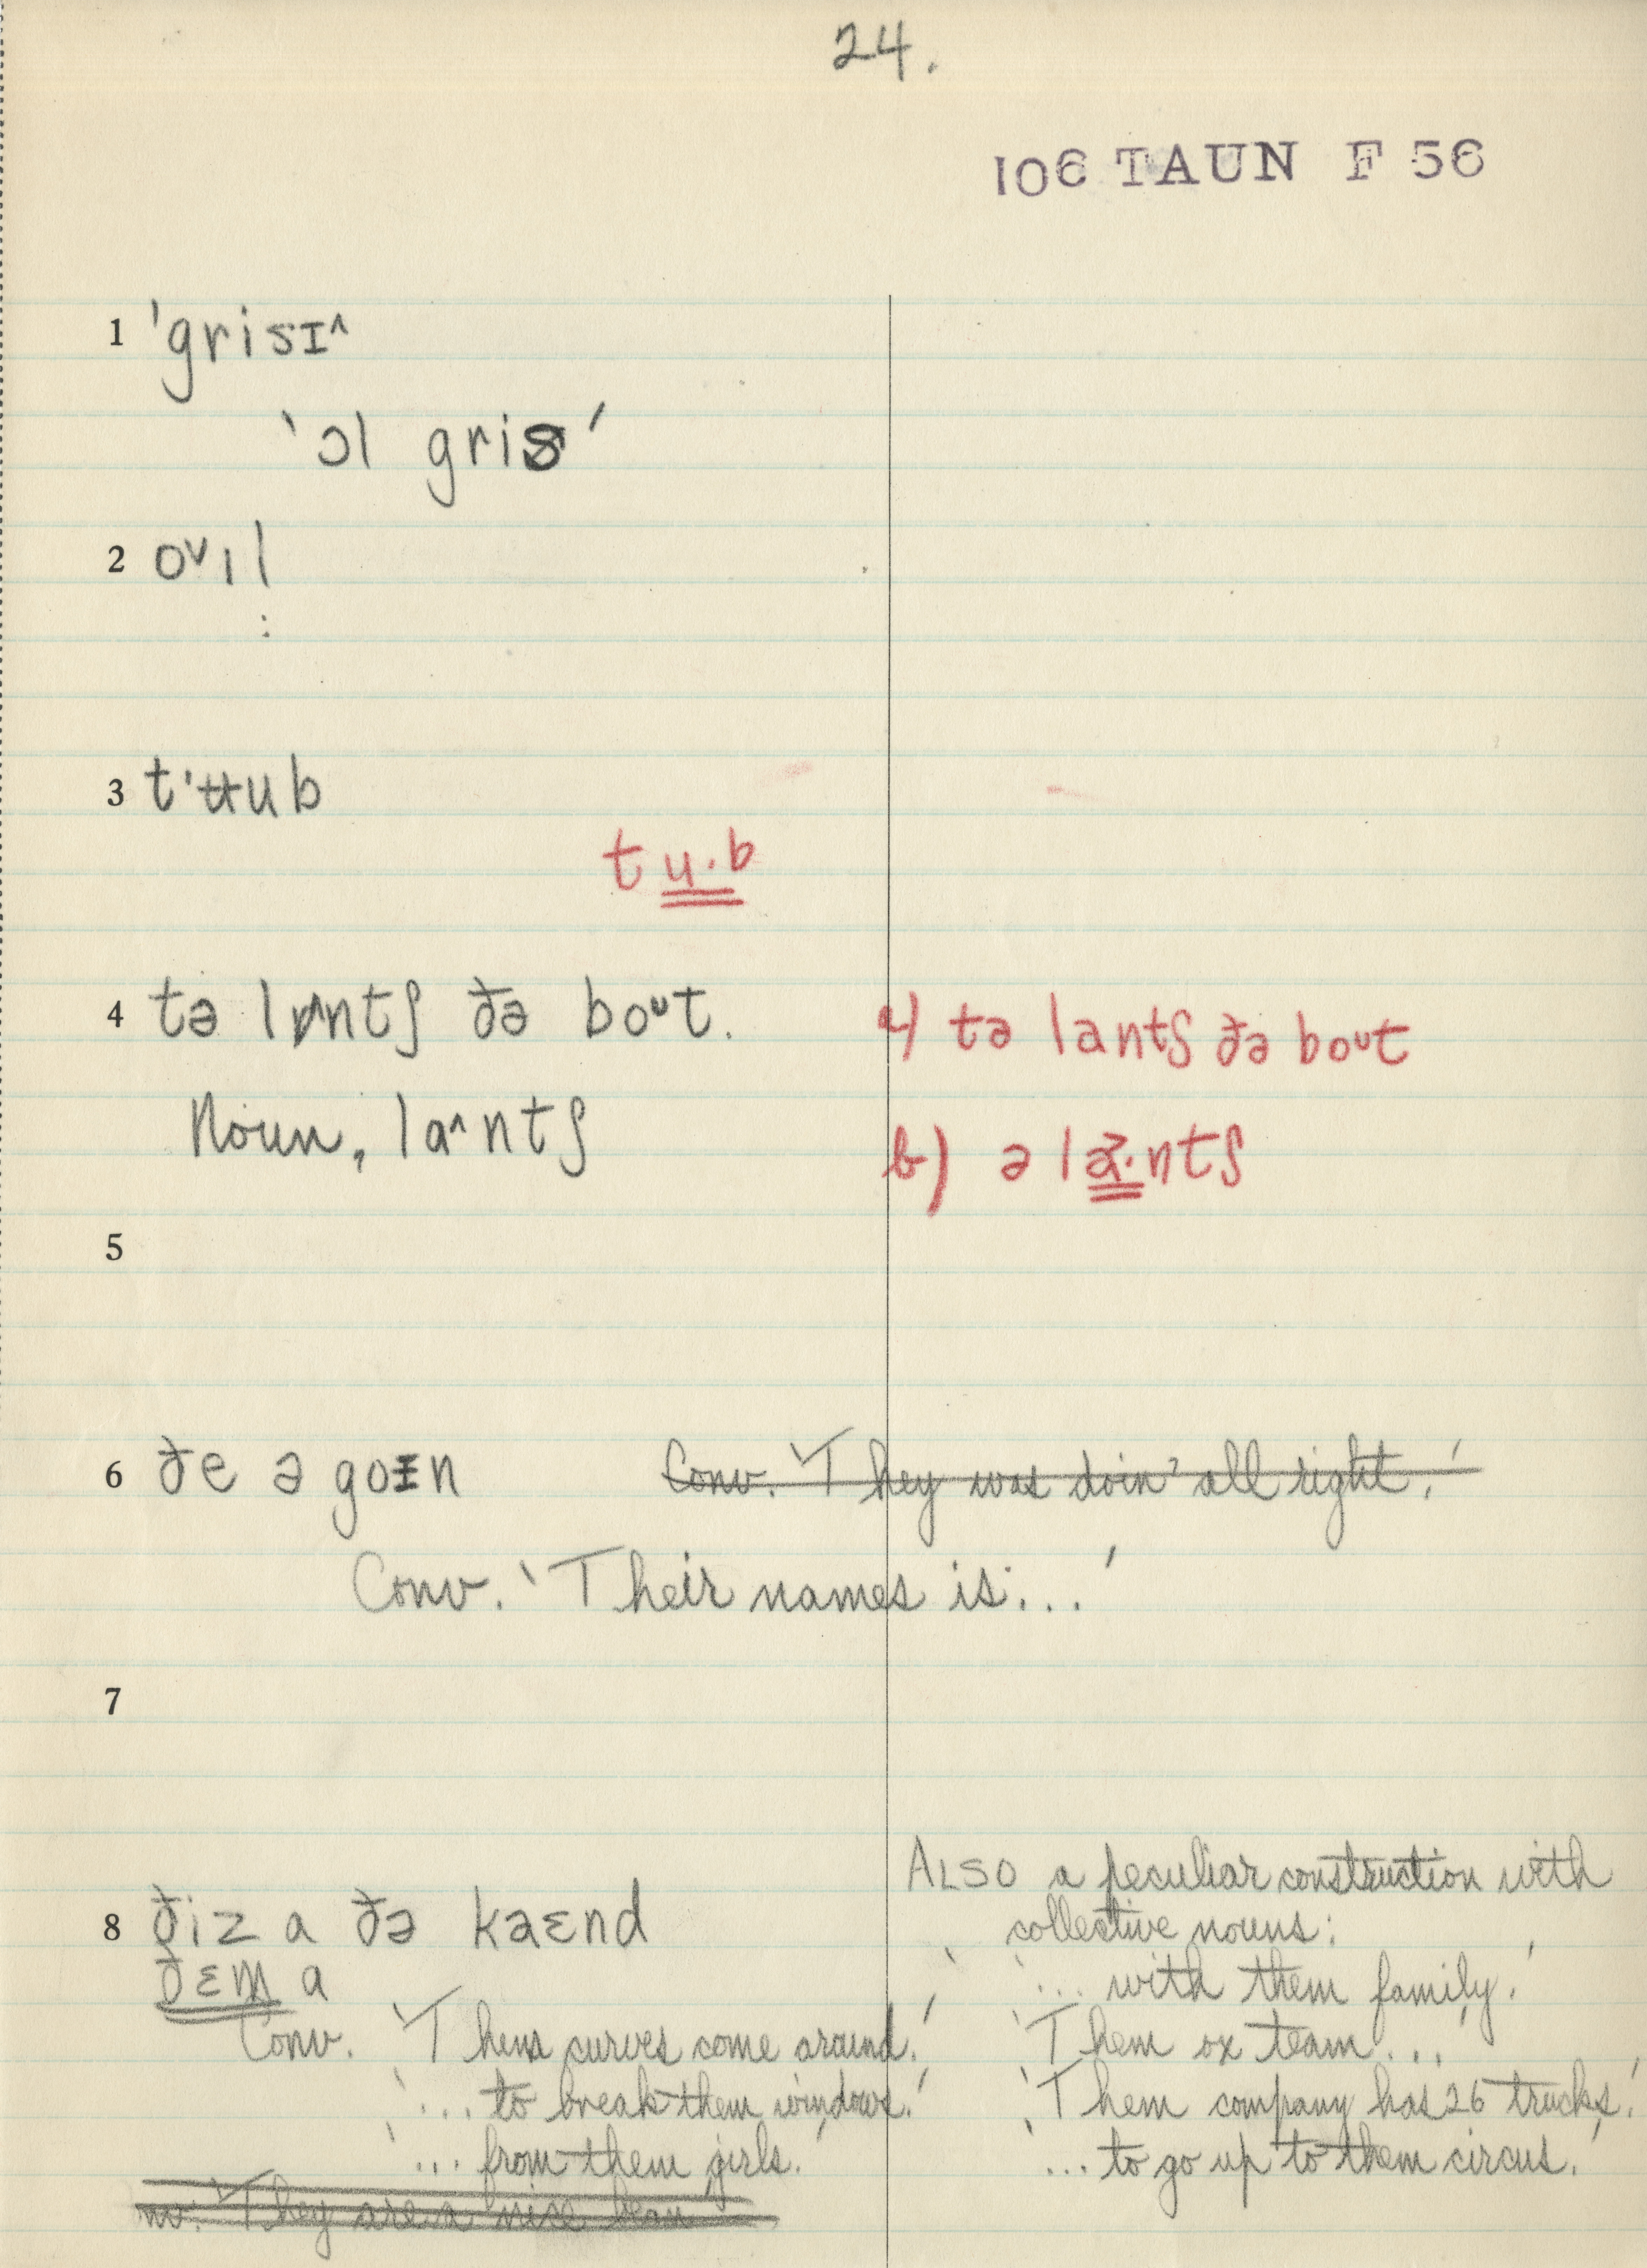 24.
106 TAUN F 56
1 'grisɪ^
'ɔl gris'
2 oᵛıl
:
3 t'ʉub
tu·b
4 tə lɒntʃ ðə boᵘt.
a) tə lantʃ ðə boᵘt
Noun, la^ntʃ
b) ə la·ntʃ
5
6 ðe ə goɪn Conv. 'They was doin' all right.'
Conv. 'Their names is...'
7
8 ðiz a ðə kaɛnd
ðɛm a
Conv. 'Them curves come around.'
'... to break them windows.'
'... from them girls.'
'They are a nice bean
ALSO a peculiar construction with
collective nouns:
'... with them family.'
'Them ox team...'
'Them company has 26 trucks.'
'... to go up to them circus.'